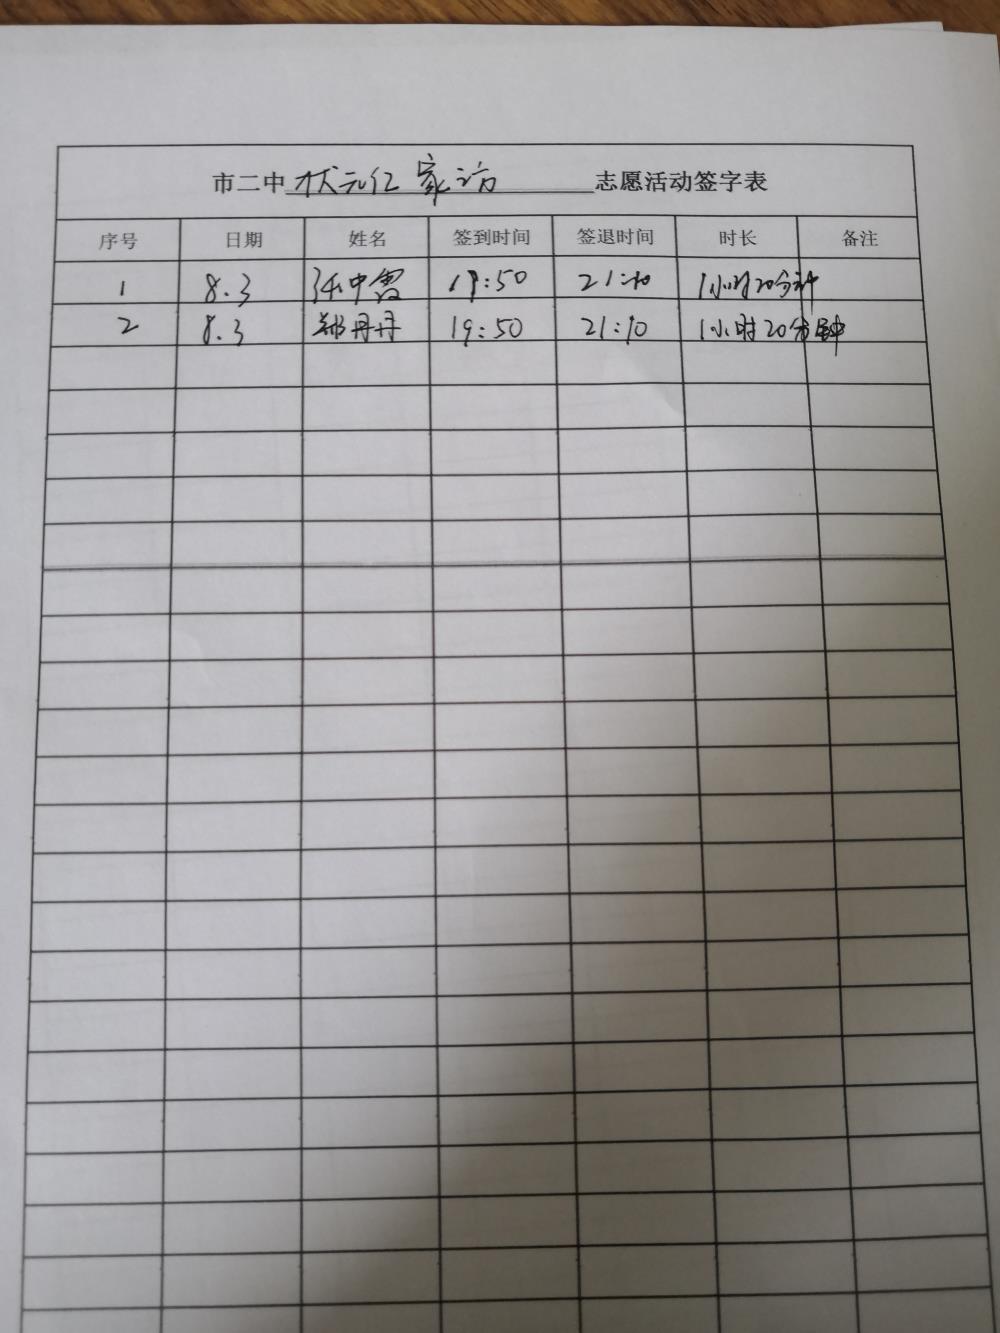 市二中状元红家访志愿活动签字表
序号 日期 姓名 签到时间 签退时间 时长 备注
1 8.3 中霞 19:50 21:10 1小时20分钟
2 8.3 郑丹丹 19:50 21:10 1小时20分钟